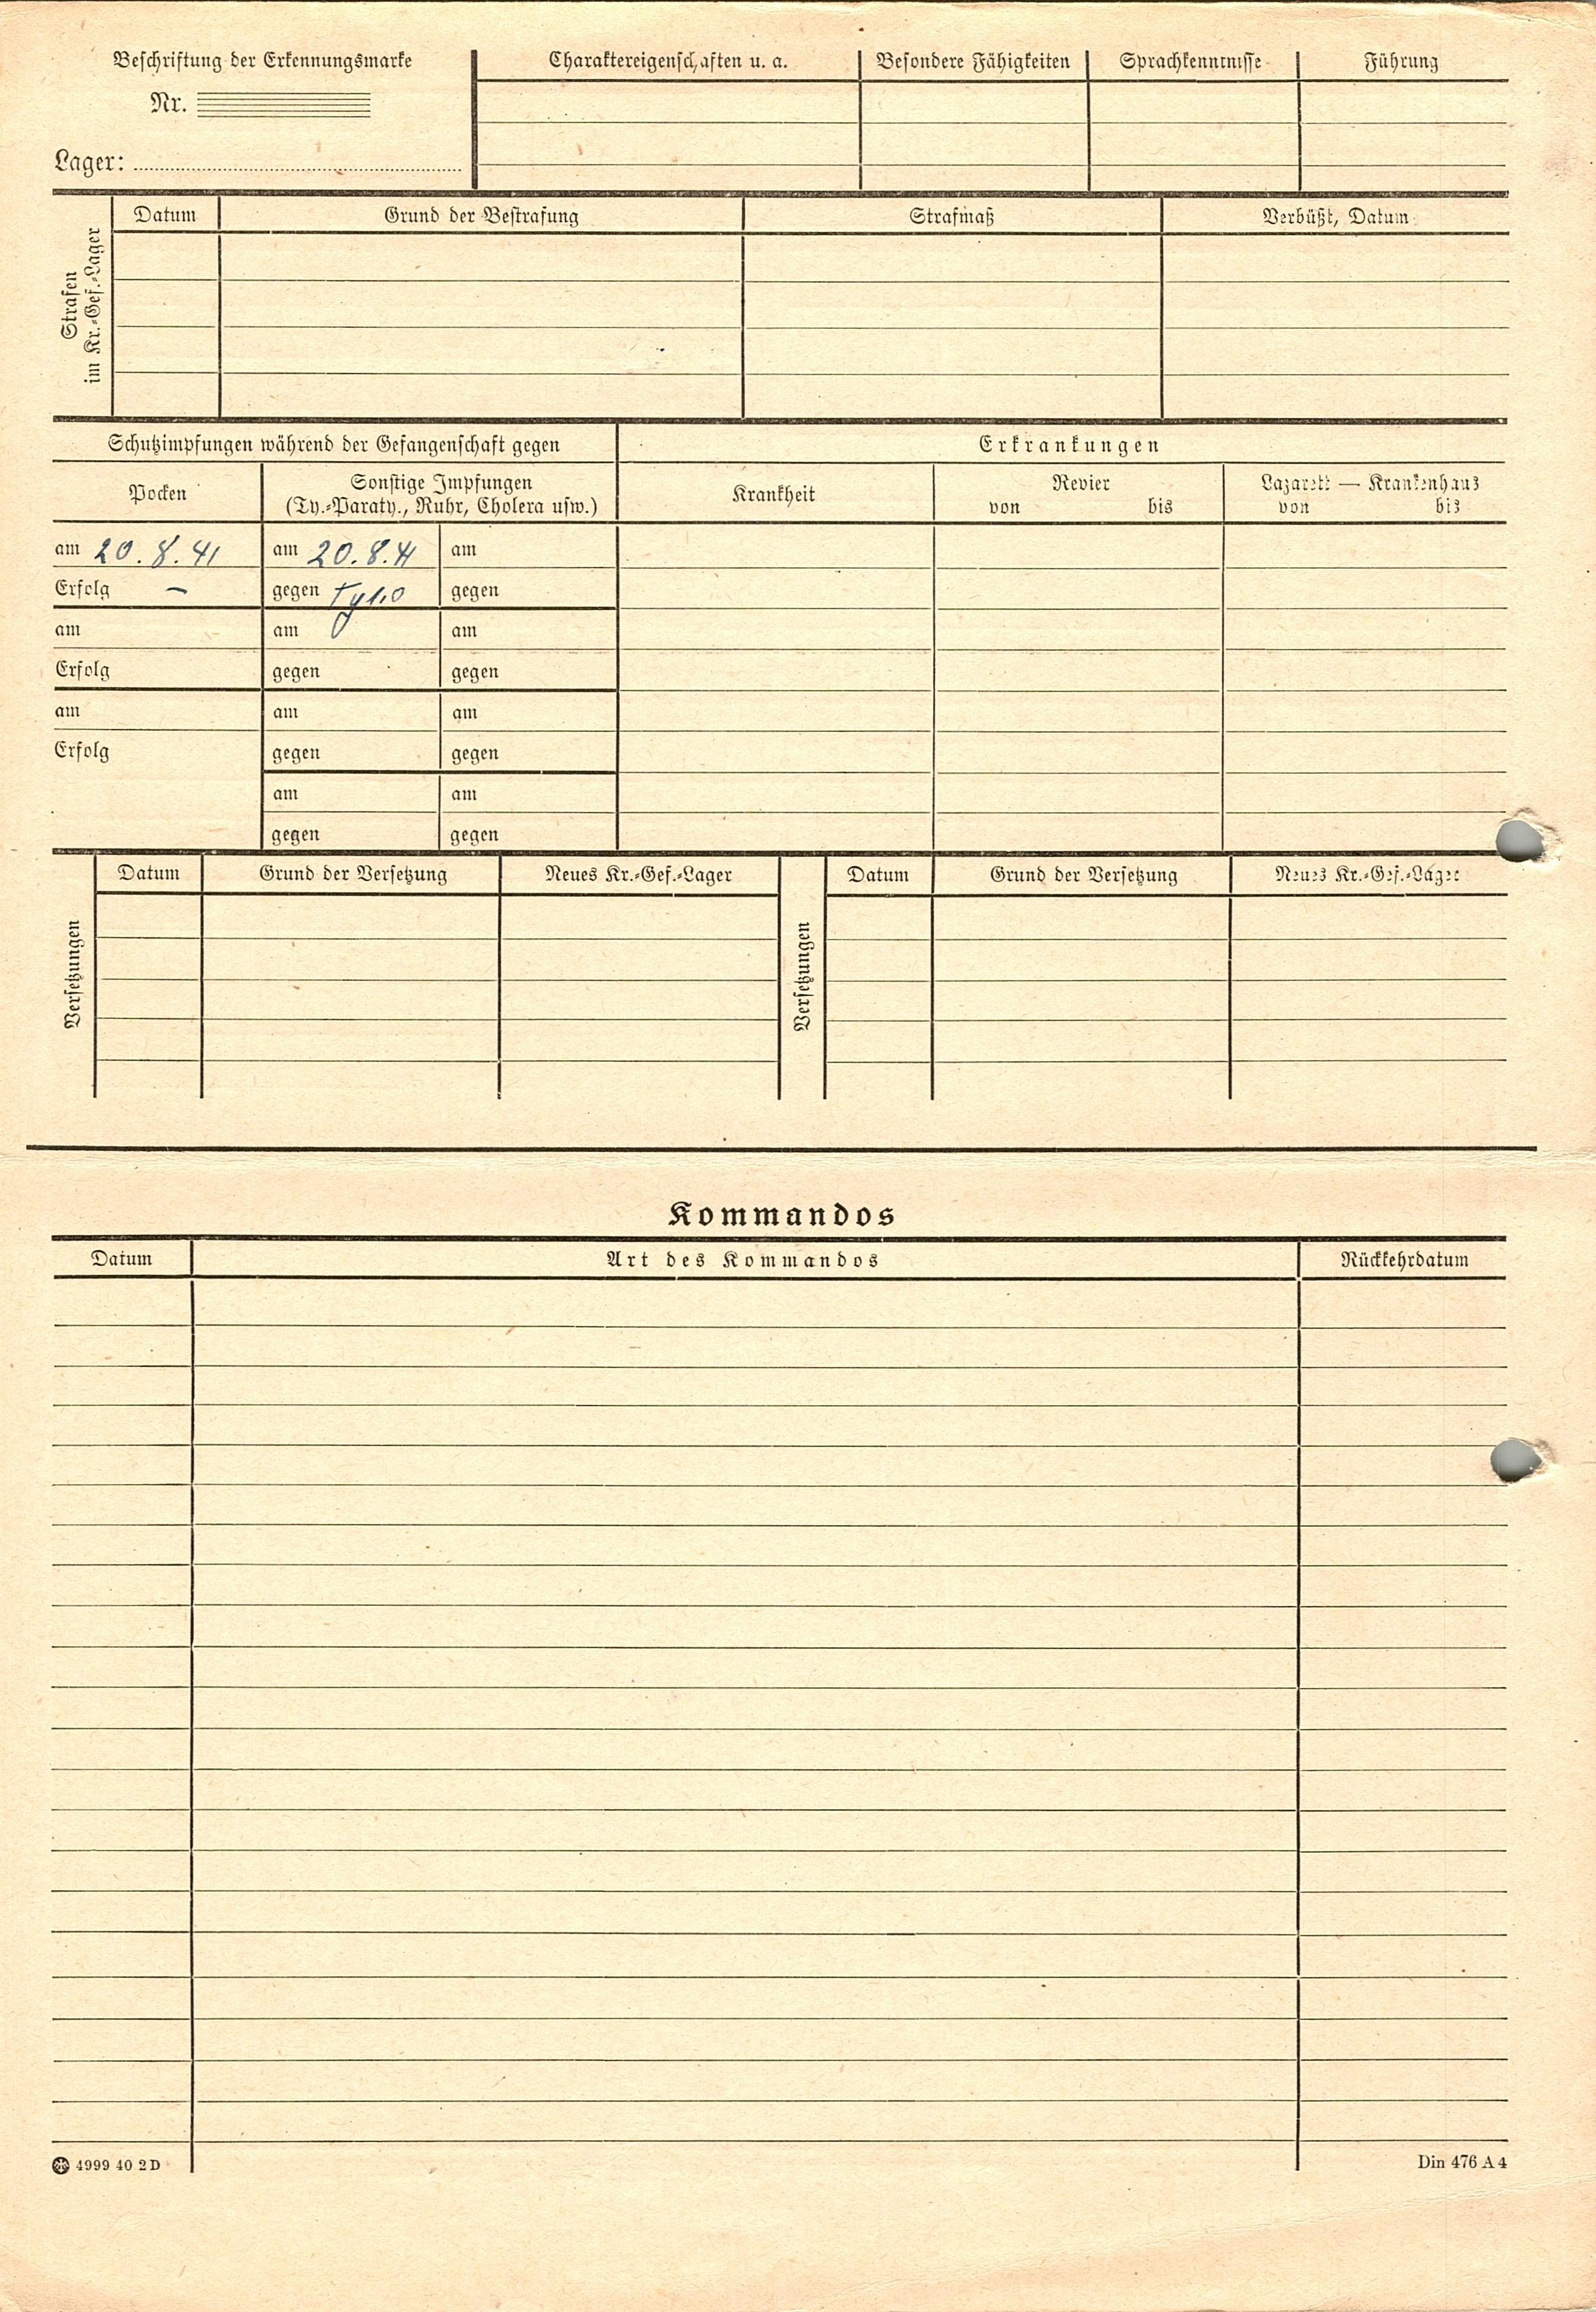 Beschriftung der Erkennungsmarke
Nr.
Lager:
Charaktereigenschaften u. a.
Besondere Fähigkeiten
Sprachkenntnisse
Führung
Strafen
im Kr.-Gef.-Lager
Datum
Grund der Bestrafung
Strafmaß
Verbüßt, Datum
Schutzimpfungen während der Gefangenschaft gegen
Erkrankungen
Pocken
Sonstige Impfungen
(Ty.-Paraty., Ruhr, Cholera usw.)
Krankheit
Revier
von bis
Lazarett — Krankenhaus
von bis
am 20.8.41 am 20.8.41 am
Erfolg – gegen gegen
am am am
Erfolg gegen gegen
am am am
Erfolg gegen gegen
am am
gegen gegen
Versetzungen
Datum
Grund der Versetzung
Neues Kr.-Gef.-Lager
Versetzungen
Datum
Grund der Versetzung
Neues Kr.-Gef.-Lager
Kommandos
Datum
Art des Kommandos
Rückkehrdatum
4999 40 2 D
Din 476 A 4